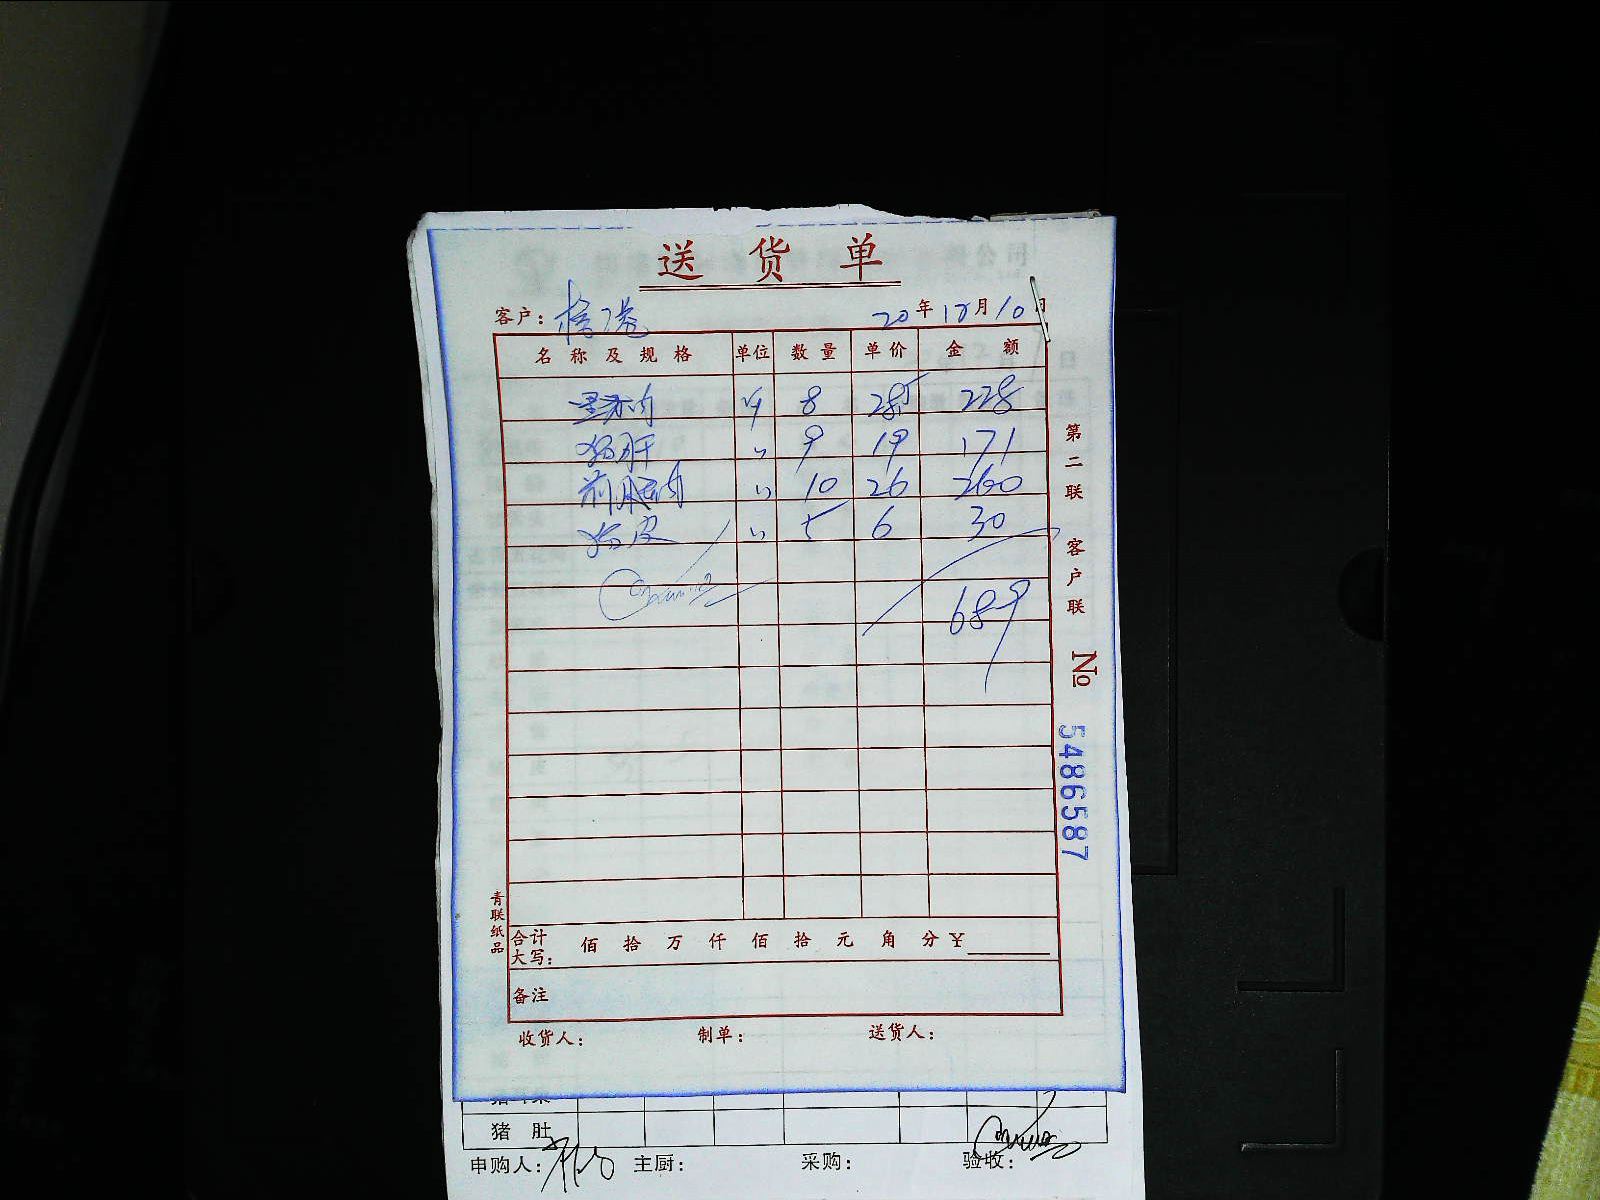 送货单
客户：
20年12月10日
名称及规格 单位 数量 单价 金额
里脊肉 斤 8 28.5 228
猪肝 〃 9 19 171
前腿肉 〃 10 26 260
猪皮 〃 5 6 30
689
第二联 客户联 № 5486587
青联纸品
合计大写： 佰 拾 万 仟 佰 拾 元 角 分 ¥
备注
收货人： 制单： 送货人：
猪肚
申购人： 主厨： 采购： 验收：